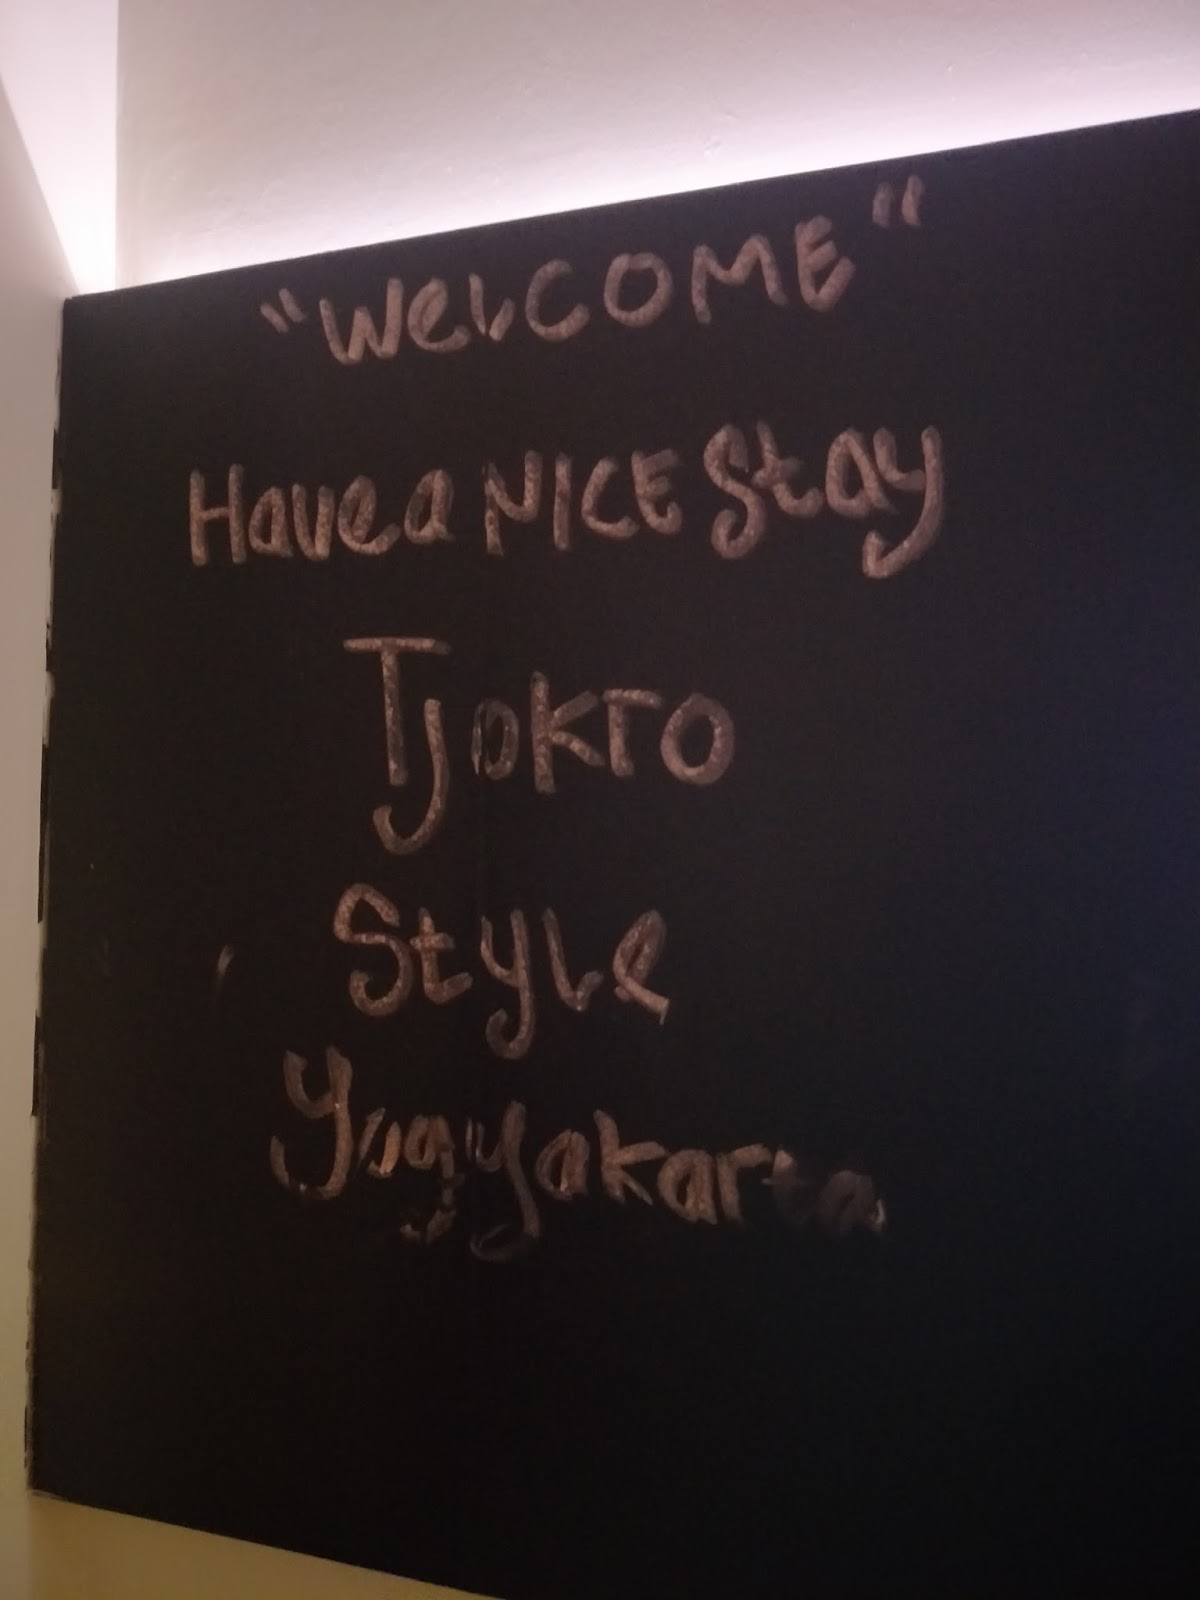 "WeLCOME"
Have a NICE Stay
Tjokro
StyLe
Yogyakarta